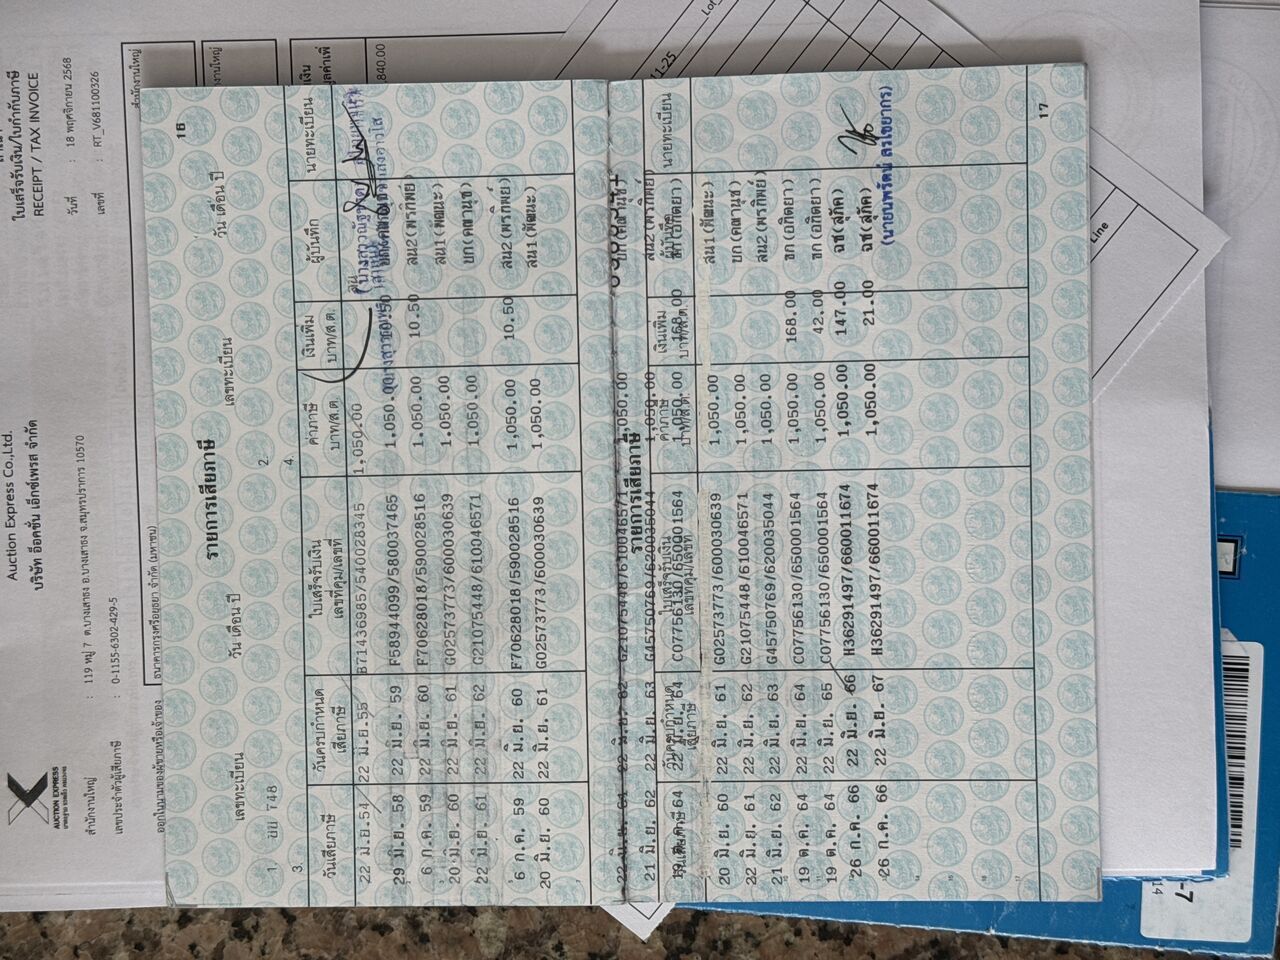 Auction Express Co.,Ltd.
บริษัท อ๊อคชั่น เอ็กซ์เพรส จำกัด
ใบเสร็จรับเงิน/ใบกำกับภาษี
RECEIPT / TAX INVOICE
AUCTION EXPRESS
สำนักงานใหญ่ : 119 หมู่ 7 ต.บางเสาธง อ.บางเสาธง จ.สมุทรปราการ 10570
เลขประจำตัวผู้เสียภาษี : 0-1155-6302-429-5
วันที่ : 18 พฤศจิกายน 2568
เลขที่ : RT_V681100326
ออกในนามของผู้ขายหรือเจ้าของ
ธนาคารกรุงศรีอยุธยา จำกัด (มหาชน)
สำนักงานใหญ่
840.00
16
รายการเสียภาษี
เลขทะเบียน วัน เดือน ปี เลขทะเบียน วัน เดือน ปี
1. 748 2.
3. 4.
วันเสียภาษี วันครบกำหนดเสียภาษี ใบเสร็จรับเงิน เลขที่คุม/เลขที่ ค่าภาษี บาท/ส.ต. เงินเพิ่ม บาท/ส.ต. ผู้บันทึก นายทะเบียน
22 มิ.ย.54 22 มิ.ย.55 B71436985/540028345 1,050.00
29 มิ.ย. 58 22 มิ.ย. 59 F58944099/580037465 1,050.00 10.50
6 ก.ค. 59 22 มิ.ย. 60 F70628018/590028516 1,050.00 10.50 สน2(พรทิพย์)
20 มิ.ย. 60 22 มิ.ย. 61 G02573773/600030639 1,050.00 สน1(พัฒนะ)
22 มิ.ย. 61 22 มิ.ย. 62 G21075448/610046571 1,050.00 บก(คณานุช)
6 ก.ค. 59 22 มิ.ย. 60 F70628018/590028516 1,050.00 10.50 สน2(พรทิพย์)
20 มิ.ย. 60 22 มิ.ย. 61 G02573773/600030639 1,050.00 สน1(พัฒนะ)
22 มิ.ย. 61 22 มิ.ย. 62 G21075448/610046571 1,050.00 บก(คณานุช)
รายการเสียภาษี
21 มิ.ย. 62 22 มิ.ย. 63 G45750769/620035044 1,050.00 สน2(พรทิพย์)
วันเสียภาษี วันครบกำหนดเสียภาษี ใบเสร็จรับเงิน เลขที่คุม/เลขที่ ค่าภาษี บาท/ส.ต. เงินเพิ่ม บาท/ส.ต. ผู้บันทึก นายทะเบียน
19 ต.ค. 64 22 มิ.ย. 64 C07756130/650001564 1,050.00 168.00 ชก(อทิตยา)
20 มิ.ย. 60 22 มิ.ย. 61 G02573773/600030639 1,050.00 สน1(พัฒนะ)
22 มิ.ย. 61 22 มิ.ย. 62 G21075448/610046571 1,050.00 บก(คณานุช)
21 มิ.ย. 62 22 มิ.ย. 63 G45750769/620035044 1,050.00 สน2(พรทิพย์)
19 ต.ค. 64 22 มิ.ย. 64 C07756130/650001564 1,050.00 168.00 ชก(อทิตยา)
19 ต.ค. 64 22 มิ.ย. 65 C07756130/650001564 1,050.00 42.00 ชก(อทิตยา)
26 ก.ค. 66 22 มิ.ย. 66 H36291497/660011674 1,050.00 147.00
26 ก.ค. 66 22 มิ.ย. 67 H36291497/660011674 1,050.00 21.00
17
11-25
Line
-7
14